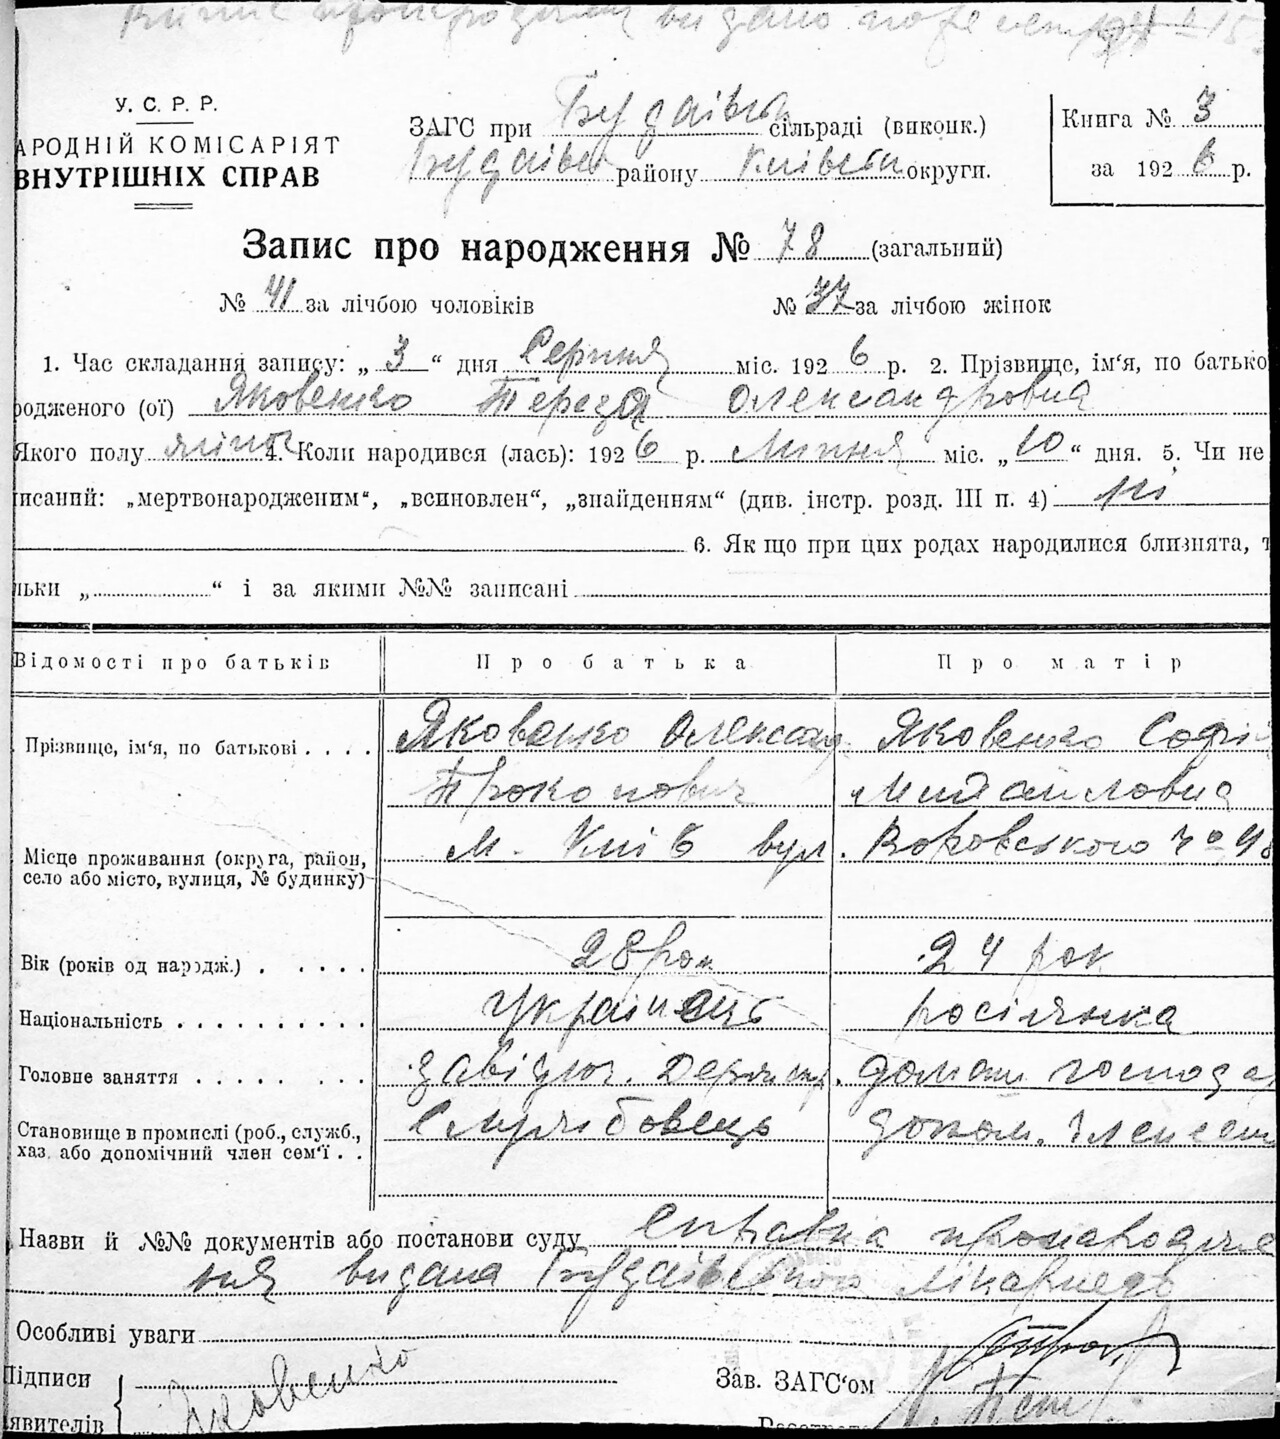 У. С. Р. Р.
АРОДНІЙ КОМІСАРІЯТ
ВНУТРІШНІХ СПРАВ
ЗАГС при Будаівськ сільраді (виконк.)
Будаівськ району Київськ округи.
Книга № 3
за 192 6 р.
Запис про народження № 78 (загальний)
№ 41 за лічбою чоловіків № 37 за лічбою жінок
1. Час складання запису: „ 3 “ дня Серпня міс. 192 6 р. 2. Прізвище, ім‘я, по батько
родженого (ої) Яковенко Тереза Олександровна
Якого полу жіноч 4. Коли народився (лась): 192 6 р. Липня міс. „ 10 “ дня. 5. Чи не
исаний: „мертвонародженим“, „всиновлен“, „знайденням“ (див. інстр. розд. III п. 4) ні
6. Як що при цих родах народилися близнята, т
льки „ “ і за якими №№ записані
Відомості про батьків Про батька Про матір
Прізвище, ім‘я, по батькові . . . . Яковенко Олександ Яковенко Софі
Прокопович Михайловна
Місце проживання (округа, район, село або місто, вулиця, № будинку) м. Київ вул. Воровського № 48
Вік (років од народж.) . . . . . 28 рок 24 рок
Національність . . . . . . . . . . українець росіянка
Головне заняття . . . . . . . . завідуюч. домаш господар
Становище в промислі (роб., служб., Службовець допом. член сем
хаз. або допомічний член сем‘ї . .
Назви й №№ документів або постанови суду Справка про народже
ння видана Будаівською лікарнею
Особливі уваги
Підписи Яковенко Зав. ЗАГС‘ом
явителів